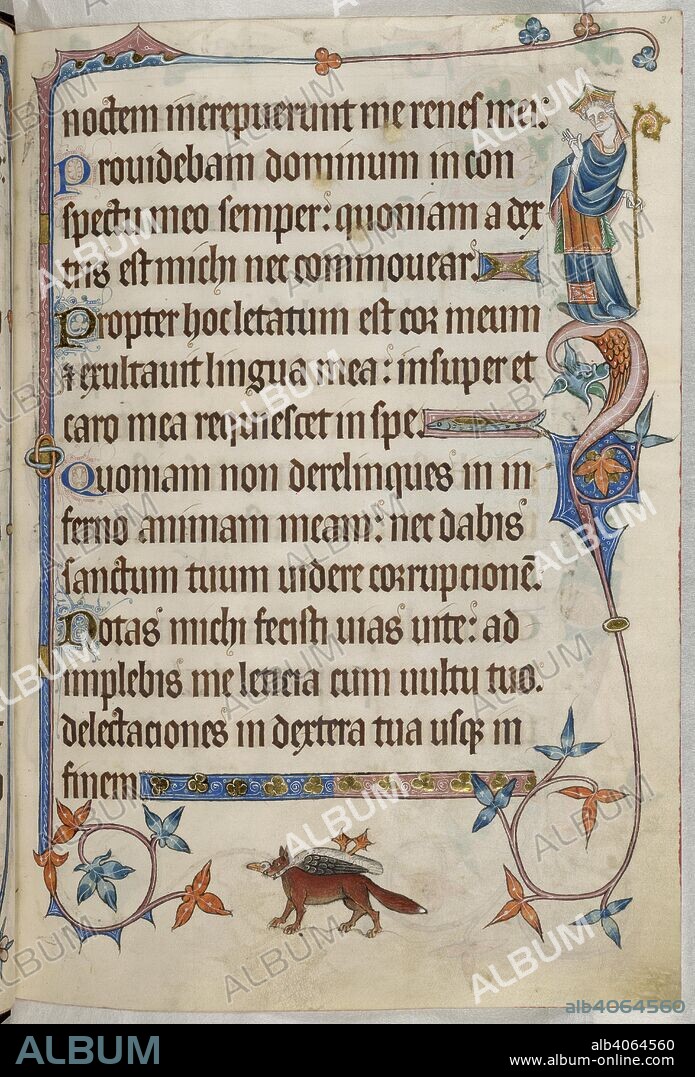 31
noctem increpuerunt me renes mei:
Prouidebam dominum in con
spectu meo semper: quoniam a dex
tris est michi ne commouear.
Propter hoc letatum est cor meum
⁊ exultauit lingua mea: insuper et
caro mea requiescet in spe.
Quoniam non derelinques in in
ferno animam meam: nec dabis
sanctum tuum uidere corrupcionē.
Notas michi fecisti uias uite: ad
implebis me leticia cum uultu tuo.
delectaciones in dextera tua usqꝫ in
finem
alb4064560
ALBUM
alb4064560
www.album-online.com